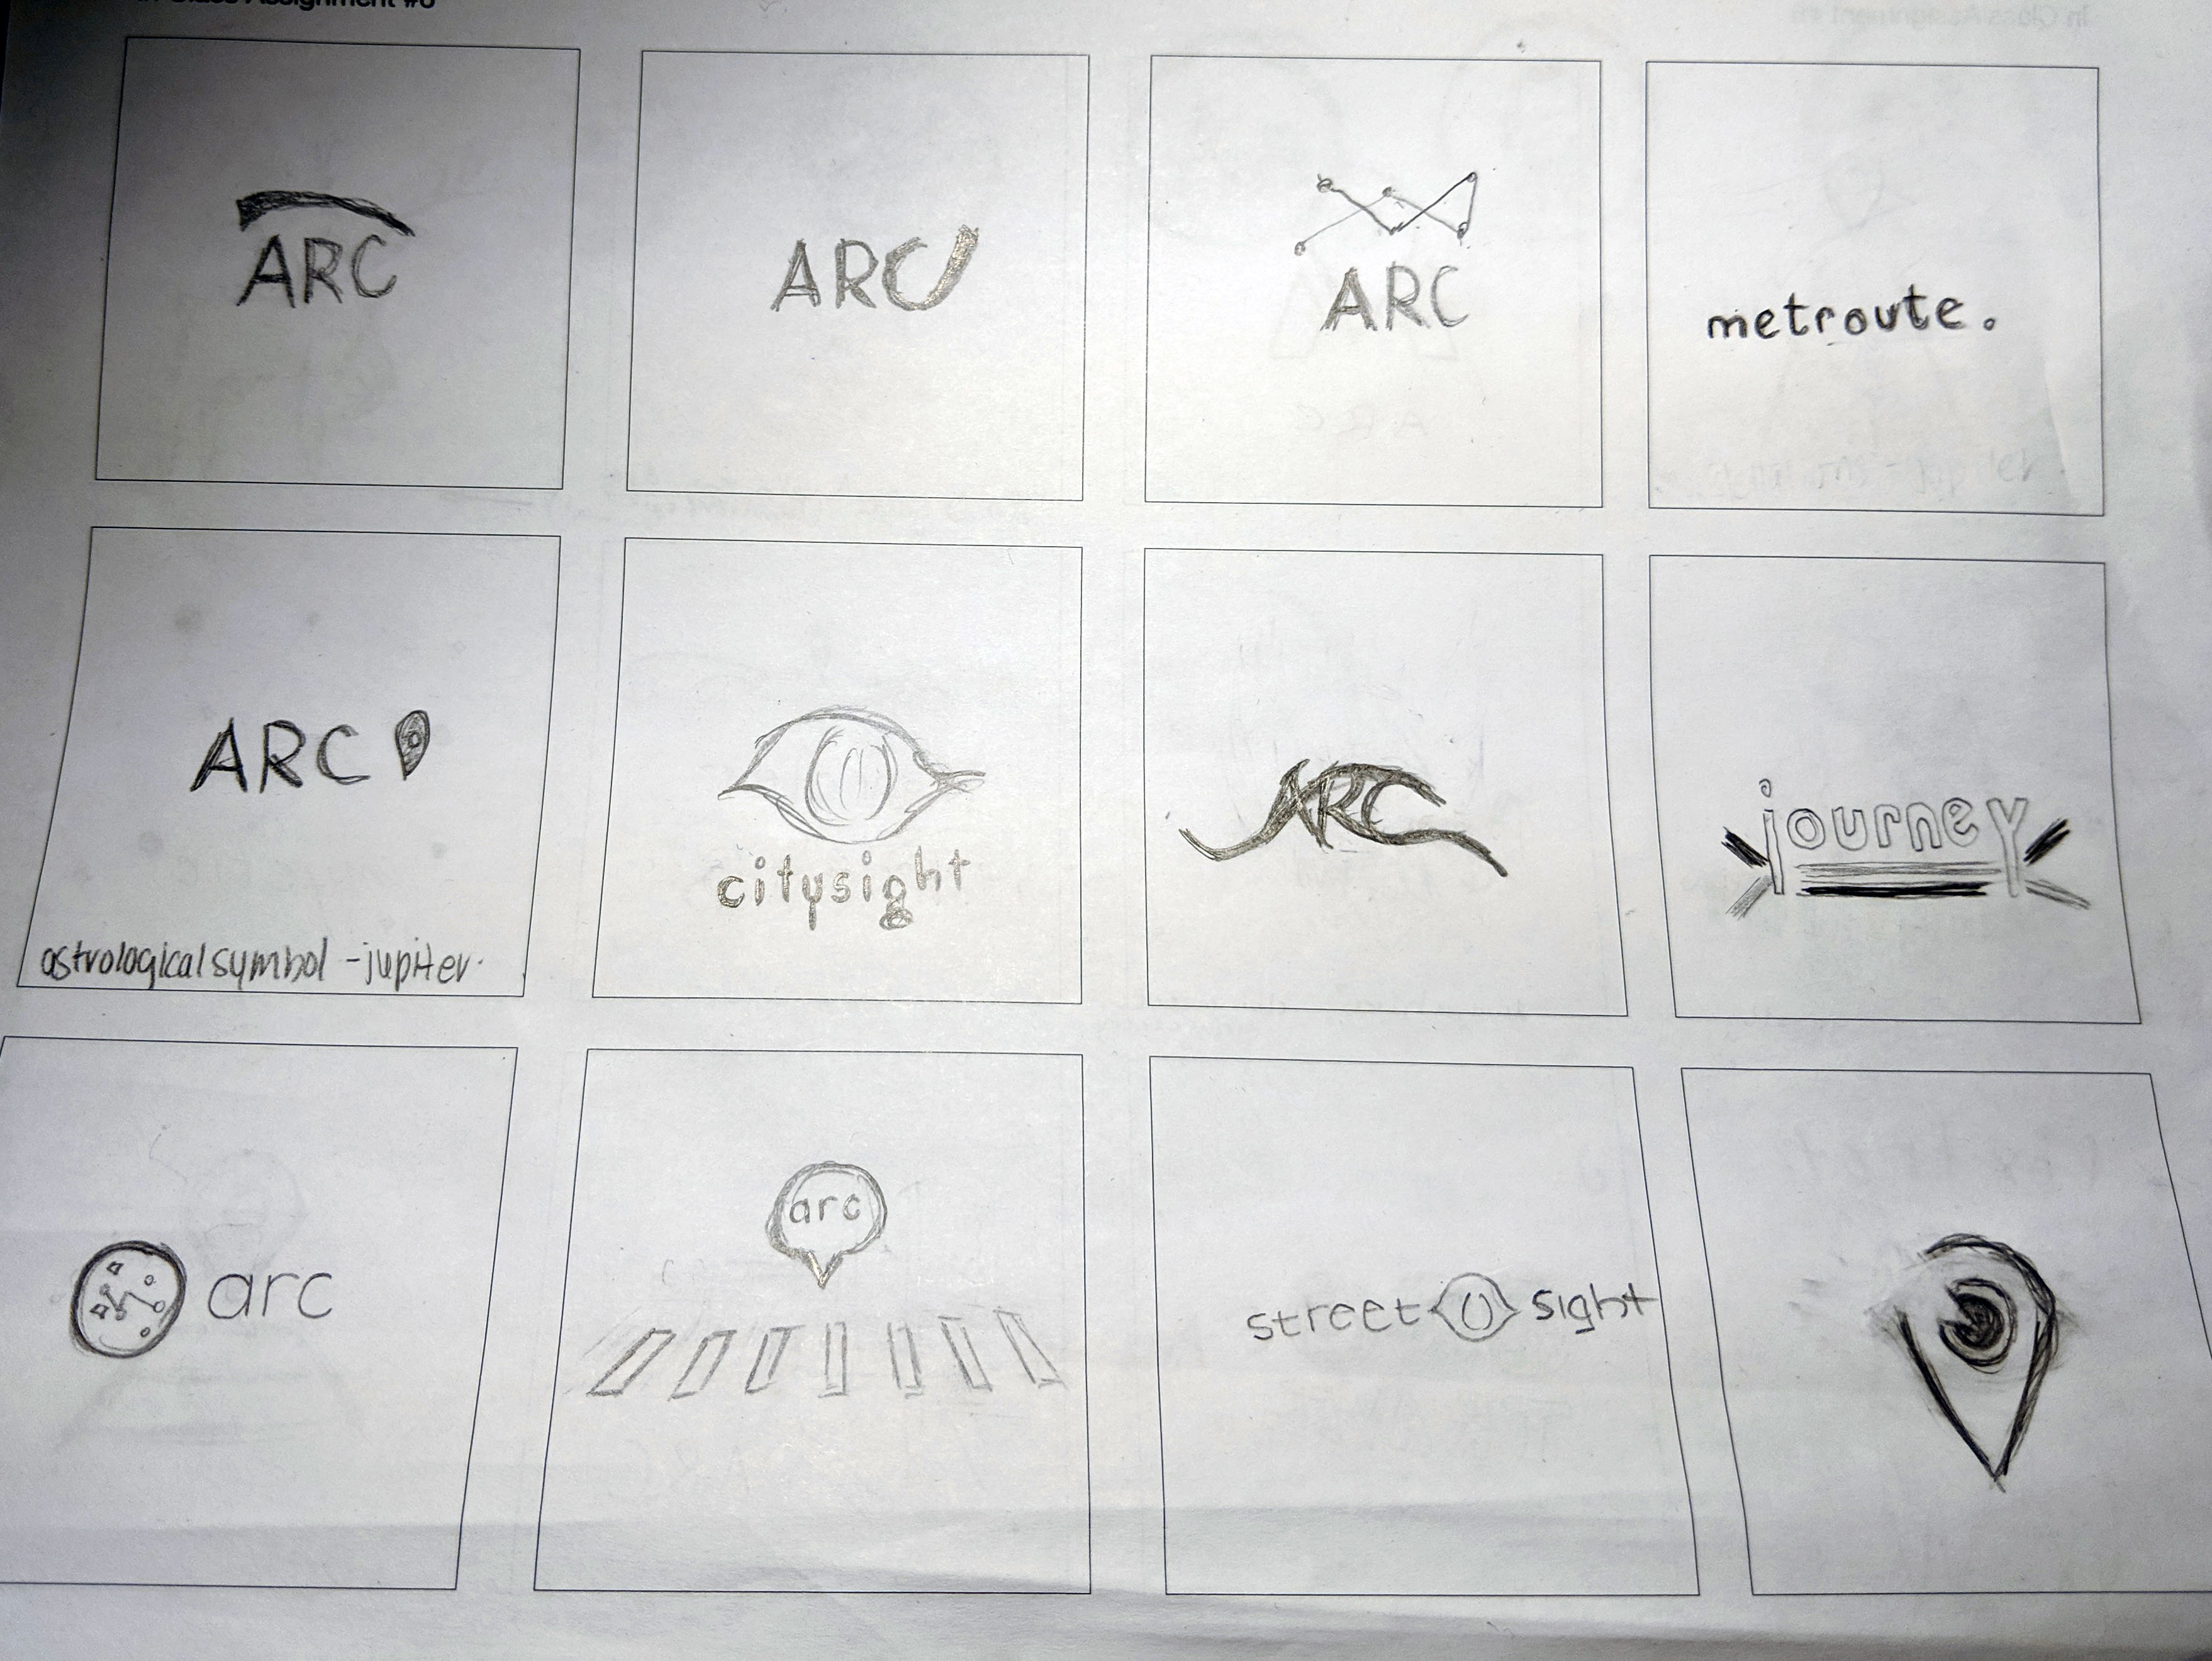 In Class Assignment #6
ARC
ARC
ARC
metroute.
ARC
astrological symbol - jupiter.
citysight
ARC
journey
arc
arc
street sight